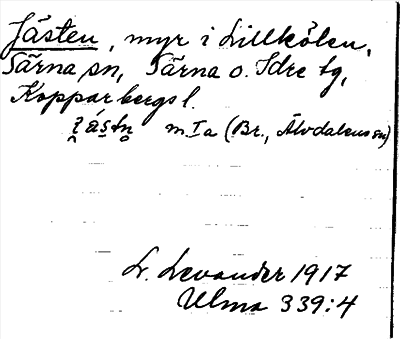 Jästen, myr i Lillkölen,
Särna sn, Särna o. Idre tg,
Kopparbergs l.
m. I a (Br., Älvdalens sn)
L. Levander 1917
Ulma 339:4